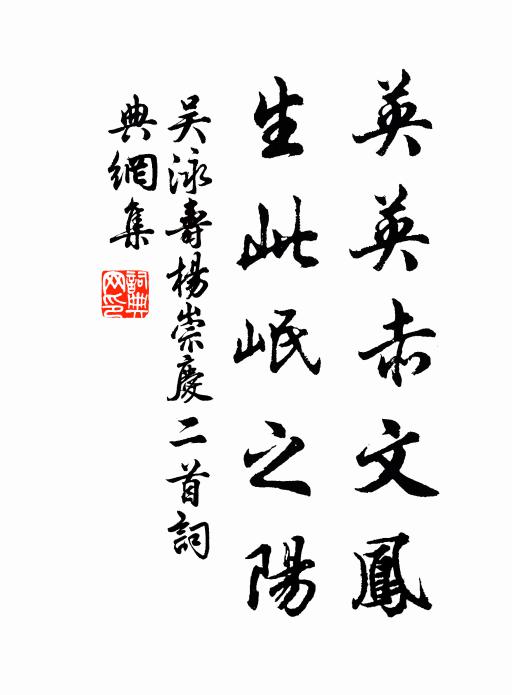 英英赤文鳳
生此岷之陽
吴泳壽楊崇慶二首詞
典網集
詞典網印